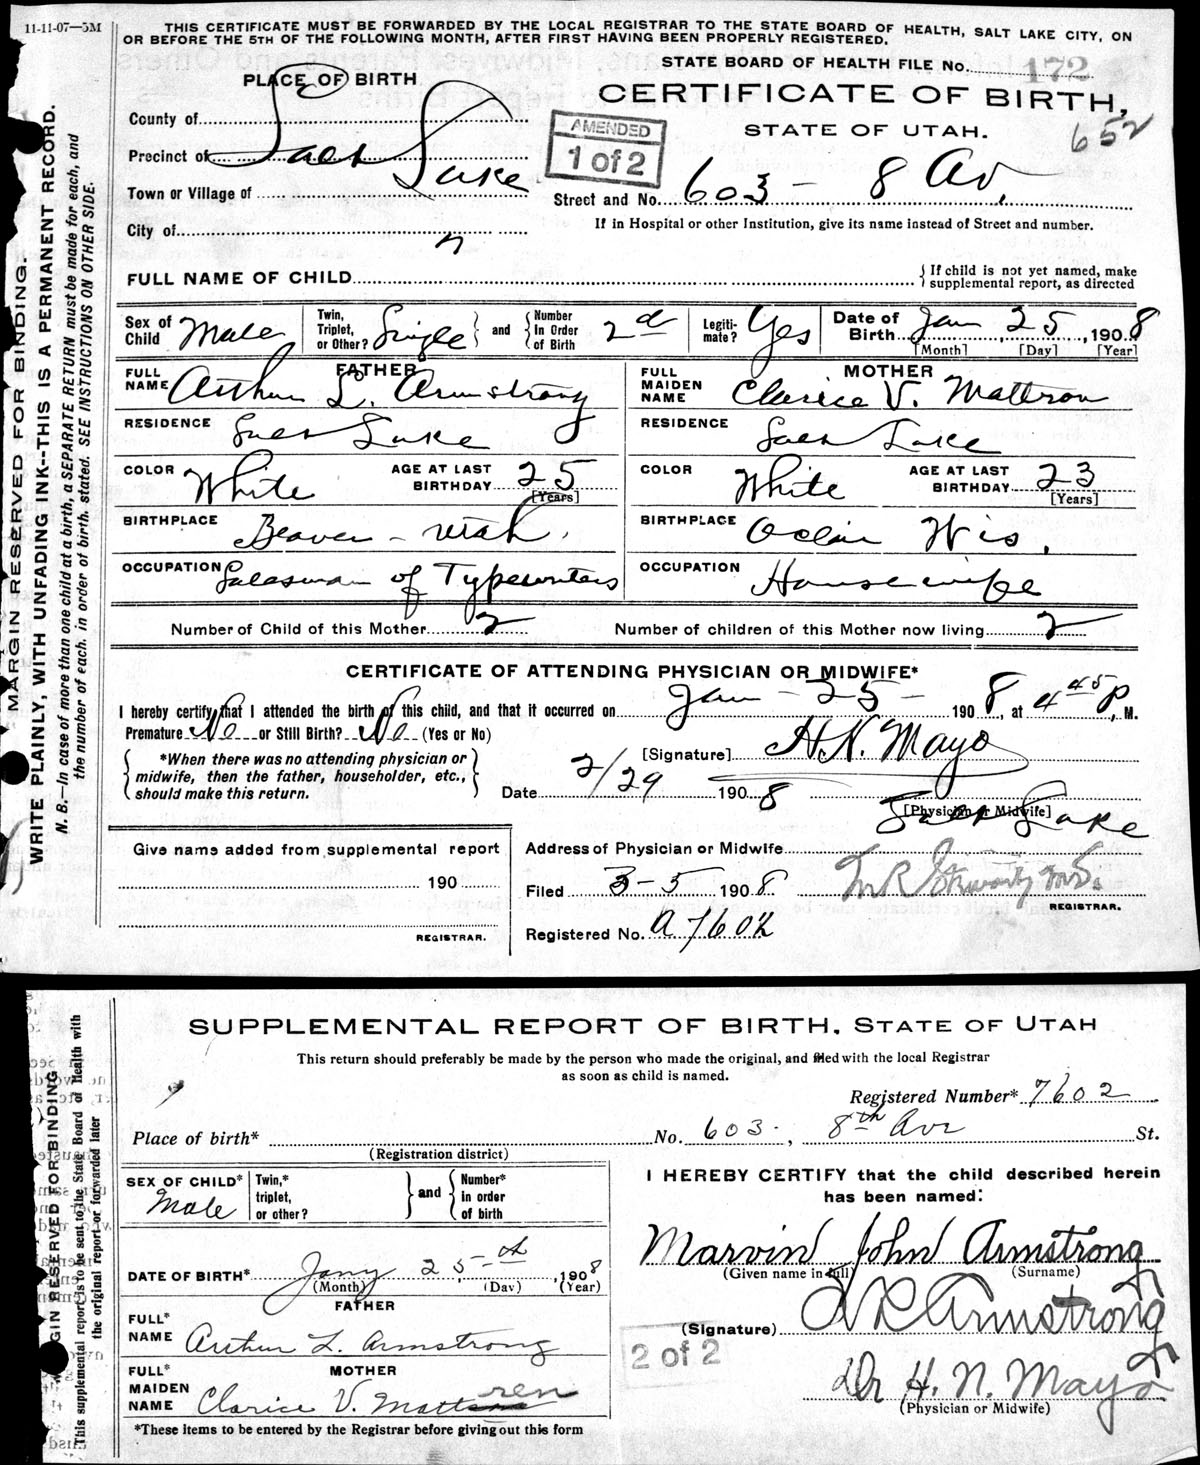 11-11-07—5M
THIS CERTIFICATE MUST BE FORWARDED BY THE LOCAL REGISTRAR TO THE STATE BOARD OF HEALTH, SALT LAKE CITY, ON
OR BEFORE THE 5TH OF THE FOLLOWING MONTH, AFTER FIRST HAVING BEEN PROPERLY REGISTERED.
STATE BOARD OF HEALTH FILE No. 172
PLACE OF BIRTH
CERTIFICATE OF BIRTH,
652
STATE OF UTAH.
AMENDED
1 of 2
County of
Precinct of Salt Lake
Town or Village of
City of "
Street and No. 603 - 8 Av.
If in Hospital or other Institution, give its name instead of Street and number.
FULL NAME OF CHILD
If child is not yet named, make
supplemental report, as directed
Sex of Child Male Twin, Triplet, or Other? Single and Number In Order of Birth 2d Legiti-mate? Yes Date of Birth Jan 25, 1908
[Month] [Day] [Year]
FATHER
FULL NAME Arthur L. Armstrong
RESIDENCE Salt Lake
COLOR White AGE AT LAST BIRTHDAY 25 [Years]
BIRTHPLACE Beaver - Utah.
OCCUPATION Salesman of Typewriters
MOTHER
FULL MAIDEN NAME Clarice V. Mattson
RESIDENCE Salt Lake
COLOR White AGE AT LAST BIRTHDAY 23 [Years]
BIRTHPLACE Wis.
OCCUPATION Housewife
Number of Child of this Mother 2 Number of children of this Mother now living 2
CERTIFICATE OF ATTENDING PHYSICIAN OR MIDWIFE*
I hereby certify that I attended the birth of this child, and that it occurred on Jan - 25 - 1908, at 4 45 P, M.
Premature No or Still Birth? No (Yes or No)
*When there was no attending physician or
midwife, then the father, householder, etc.,
should make this return.
[Signature] H.N. Mayo
Date 2/29 1908
[Physician or Midwife]
Salt Lake
Address of Physician or Midwife
Give name added from supplemental report
190
REGISTRAR.
Filed 3-5 1908
REGISTRAR.
Registered No. A7602
MARGIN RESERVED FOR BINDING.
WRITE PLAINLY, WITH UNFADING INK--THIS IS A PERMANENT RECORD.
N. B.—In case of more than one child at a birth, a SEPARATE RETURN must be made for each, and
the number of each, in order of birth, stated. SEE INSTRUCTIONS ON OTHER SIDE.
SUPPLEMENTAL REPORT OF BIRTH, STATE OF UTAH
This return should preferably be made by the person who made the original, and filed with the local Registrar
as soon as child is named.
Registered Number* 7602
Place of birth* No. 603, 8th Ave St.
(Registration district)
SEX OF CHILD* Male Twin,* triplet, or other? and Number* in order of birth
DATE OF BIRTH* Jany 25th, 1908
(Month) (Day) (Year)
FATHER
FULL* NAME Arthur L. Armstrong
MOTHER
FULL* MAIDEN NAME Clarice V. Mattsren
*These items to be entered by the Registrar before giving out this form
I HEREBY CERTIFY that the child described herein
has been named:
Marvin John Armstrong
(Given name in full) (Surname)
(Signature) Armstrong
2 of 2
Dr H. N. Mayo
(Physician or Midwife)
GIN RESERVED FOR BINDING
This supplemental report is to be sent to the State Board of Health with
the original report or forwarded later